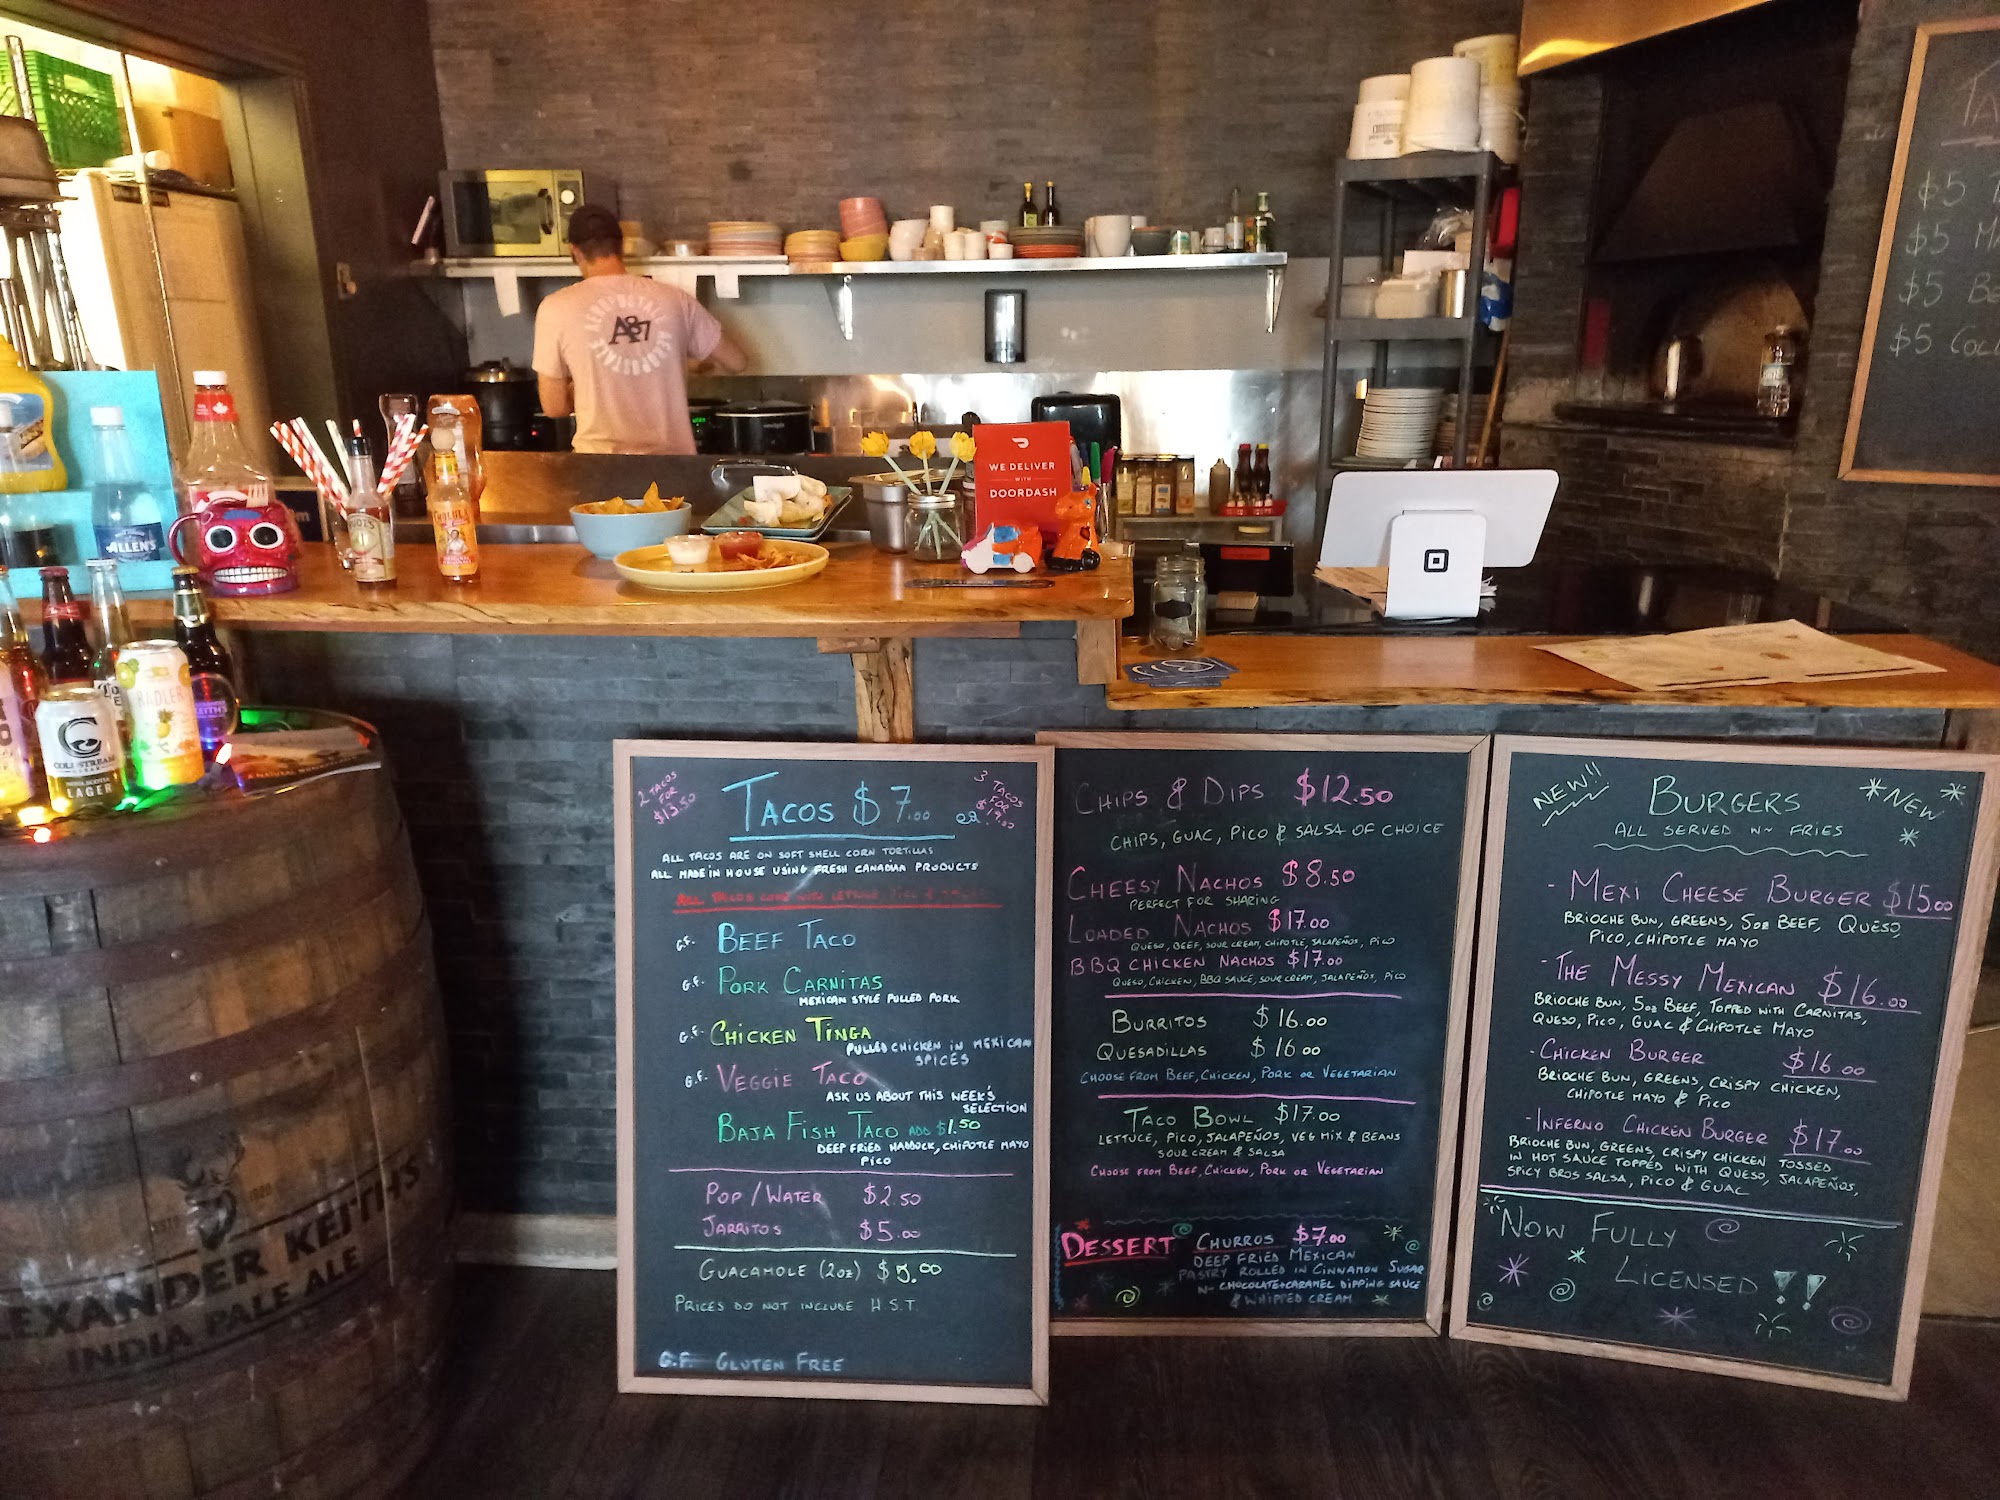 A87
AEROPOSTALE
WE DELIVER
WITH
DOORDASH
ALLEN'S
CHOLULA
RADLER
COLDSTREAM
NOVA SCOTIA
LAGER
KEITH'S
$5
$5
$5
$5
2 TACOS
FOR
$13.50
TACOS $7.00 ea.
3 TACOS
FOR
$19.00
ALL TACOS ARE ON SOFT SHELL CORN TORTILLAS
ALL MADE IN HOUSE USING FRESH CANADIAN PRODUCTS
ALL TACOS COME WITH LETTUCE, PICO &
G.F. BEEF TACO
G.F. PORK CARNITAS
MEXICAN STYLE PULLED PORK
G.F. CHICKEN TINGA
PULLED CHICKEN IN MEXICAN
SPICES
G.F. VEGGIE TACO
ASK US ABOUT THIS WEEK'S
SELECTION
BAJA FISH TACO ADD $1.50
DEEP FRIED HADDOCK, CHIPOTLE MAYO
PICO
POP/WATER $2.50
JARRITOS $5.00
GUACAMOLE (2oz) $5.00
PRICES DO NOT INCLUDE H.S.T.
G.F. GLUTEN FREE
CHIPS & DIPS $12.50
CHIPS, GUAC, PICO & SALSA OF CHOICE
CHEESY NACHOS $8.50
PERFECT FOR SHARING
LOADED NACHOS $17.00
QUESO, BEEF, SOUR CREAM, CHIPOTLE, JALAPEÑOS, PICO
BBQ CHICKEN NACHOS $17.00
QUESO, CHICKEN, BBQ SAUCE, SOUR CREAM, JALAPEÑOS, PICO
BURRITOS $16.00
QUESADILLAS $16.00
CHOOSE FROM BEEF, CHICKEN, PORK OR VEGETARIAN
TACO BOWL $17.00
LETTUCE, PICO, JALAPEÑOS, VEG MIX & BEANS
SOUR CREAM & SALSA
CHOOSE FROM BEEF, CHICKEN, PORK OR VEGETARIAN
DESSERT CHURROS $7.00
DEEP FRIED MEXICAN
PASTRY ROLLED IN CINNAMON SUGAR
W~ CHOCOLATE+CARAMEL DIPPING SAUCE
& WHIPPED CREAM
NEW!! BURGERS *NEW*
ALL SERVED W~ FRIES
- MEXI CHEESE BURGER $15.00
BRIOCHE BUN, GREENS, 5oz BEEF, QUESO,
PICO, CHIPOTLE MAYO
- THE MESSY MEXICAN $16.00
BRIOCHE BUN, 5oz BEEF, TOPPED WITH CARNITAS,
QUESO, PICO, GUAC & CHIPOTLE MAYO
- CHICKEN BURGER $16.00
BRIOCHE BUN, GREENS, CRISPY CHICKEN,
CHIPOTLE MAYO & PICO
- INFERNO CHICKEN BURGER $17.00
BRIOCHE BUN, GREENS, CRISPY CHICKEN TOSSED
IN HOT SAUCE TOPPED WITH QUESO, JALAPEÑOS,
SPICY BROS SALSA, PICO & GUAC
NOW FULLY
LICENSED !!
EXANDER KEITH'S
INDIA PALE ALE